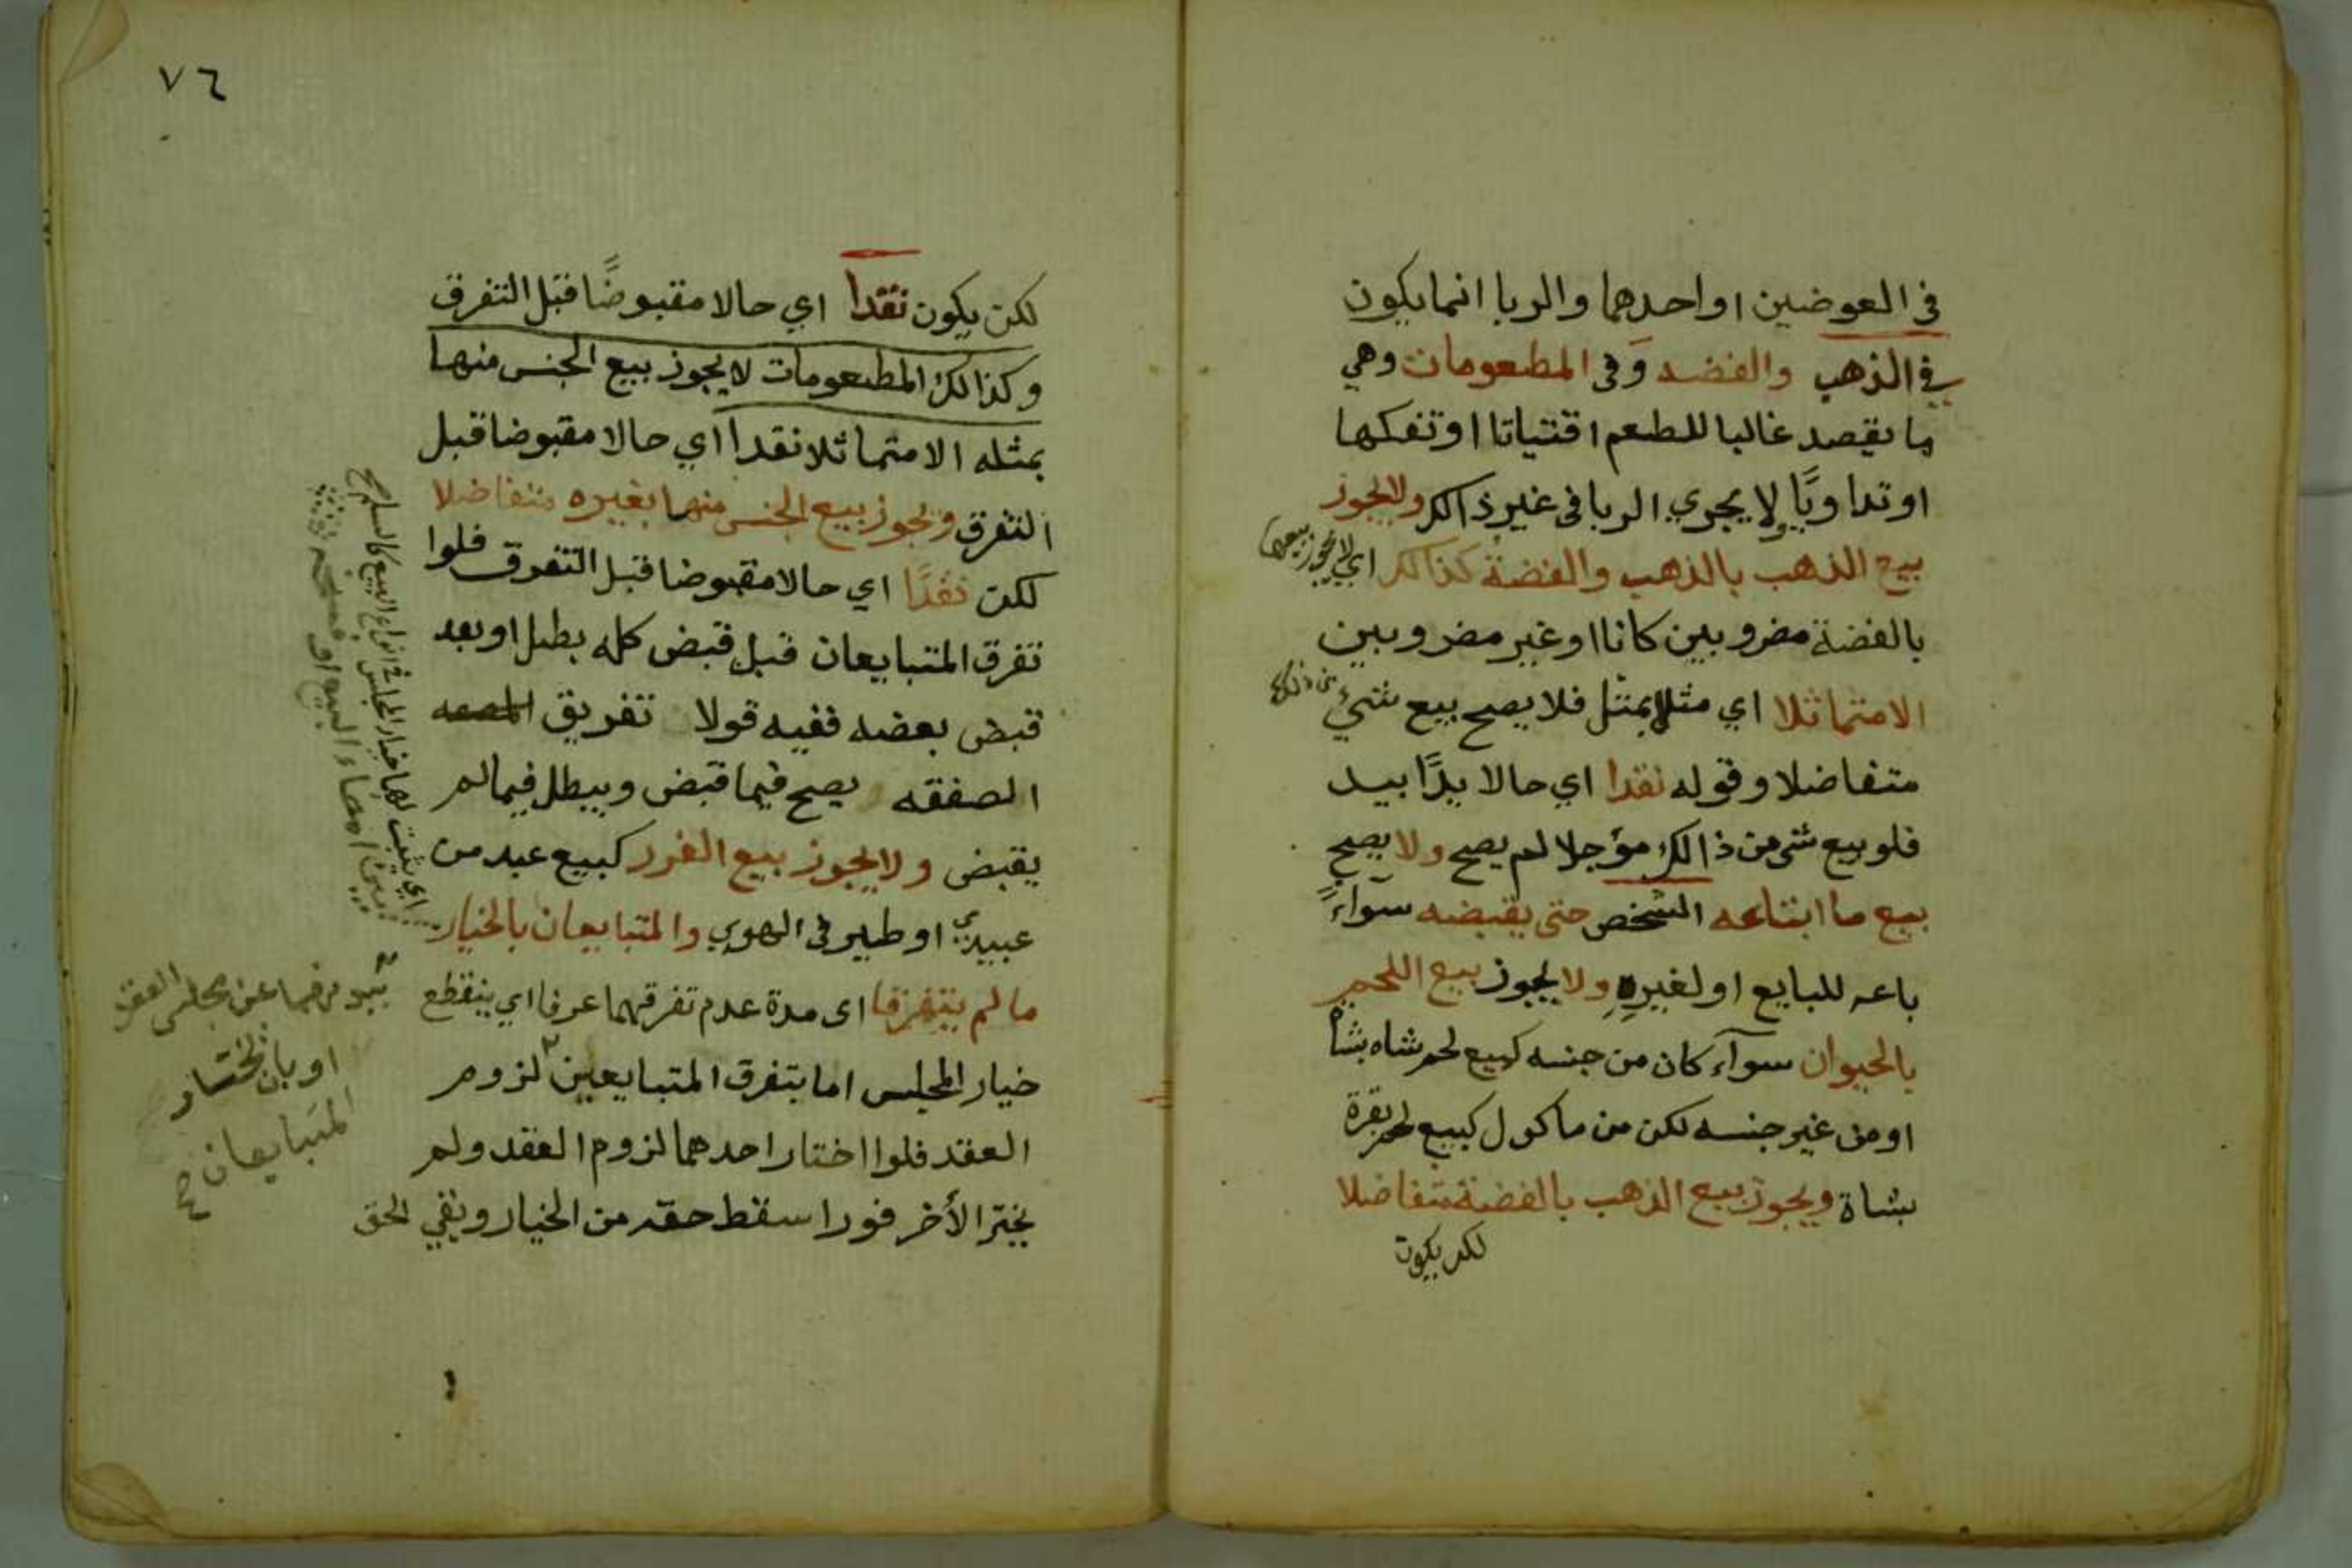 في العوضين او احدهما والربا انما يكون
في الذهب والفضه وفى المطعومات وهي
ما يقصد غالبا للطعم اقتياتا او تفكها
او تداويًا ولا يجري الربا فى غير ذالك ولا يجوز
بيع الذهب بالذهب والفضة كذالك اي لا يجوز بيعها
بالفضة مضروبين كانا او غير مضروبين
الا متماثلا اي مثلا بمثل فلا يصح بيع شيء من ذلك
متفاضلا وقوله نقدا اي حالا يدًا بيد
فلو بيع شي من ذالك مؤجلا لم يصح ولا يصح
بيع ما ابتاعه الشخص حتى يقبضه سوآء
باعه للبايع او لغيره ولا يجوز بيع اللحم
بالحيوان سوآء كان من جنسه كبيع لحم شاه بشاة
او من غير جنسه لكن من ماكول كبيع لحم بقرة
بشاة ويجوز بيع الذهب بالفضة متفاضلا
لكن يكون
٧٦
لكن يكون نقدا اي حالا مقبوضًا قبل التفرق
وكذالك المطعومات لا يجوز بيع الجنس منها
بمثله الا متماثلا نقدا اي حالا مقبوضا قبل
التفرق ويجوز بيع الجنس منها بغيره متفاضلا
لكن نقدًا اي حالا مقبوضا قبل التفرق فلوا
تفرق المتبايعان قبل قبض كله بطل او بعد
قبض بعضه ففيه قولا تفريق
الصفقه يصح فيما قبض ويبطل فيما لم
يقبض ولا يجوز بيع الغرر كبيع عبد من
عبيدي او طير في الهوي والمتبايعان بالخيار
ما لم يتفرقا اى مدة عدم تفرقهما عرفا اي ينقطع
خيار المجلس اما بتفرق المتبايعين لزوم
العقد فلوا اختار احدهما لزوم العقد ولم
يختر الأخر فورا سقط حقه من الخيار وبقي الحق
اي يثبت لهما خيار المجلس في انواع البيع كالسلم
امضاء البيع او فسخه
عن مجلس العقد
او بان يختار
المتبايعان
صح